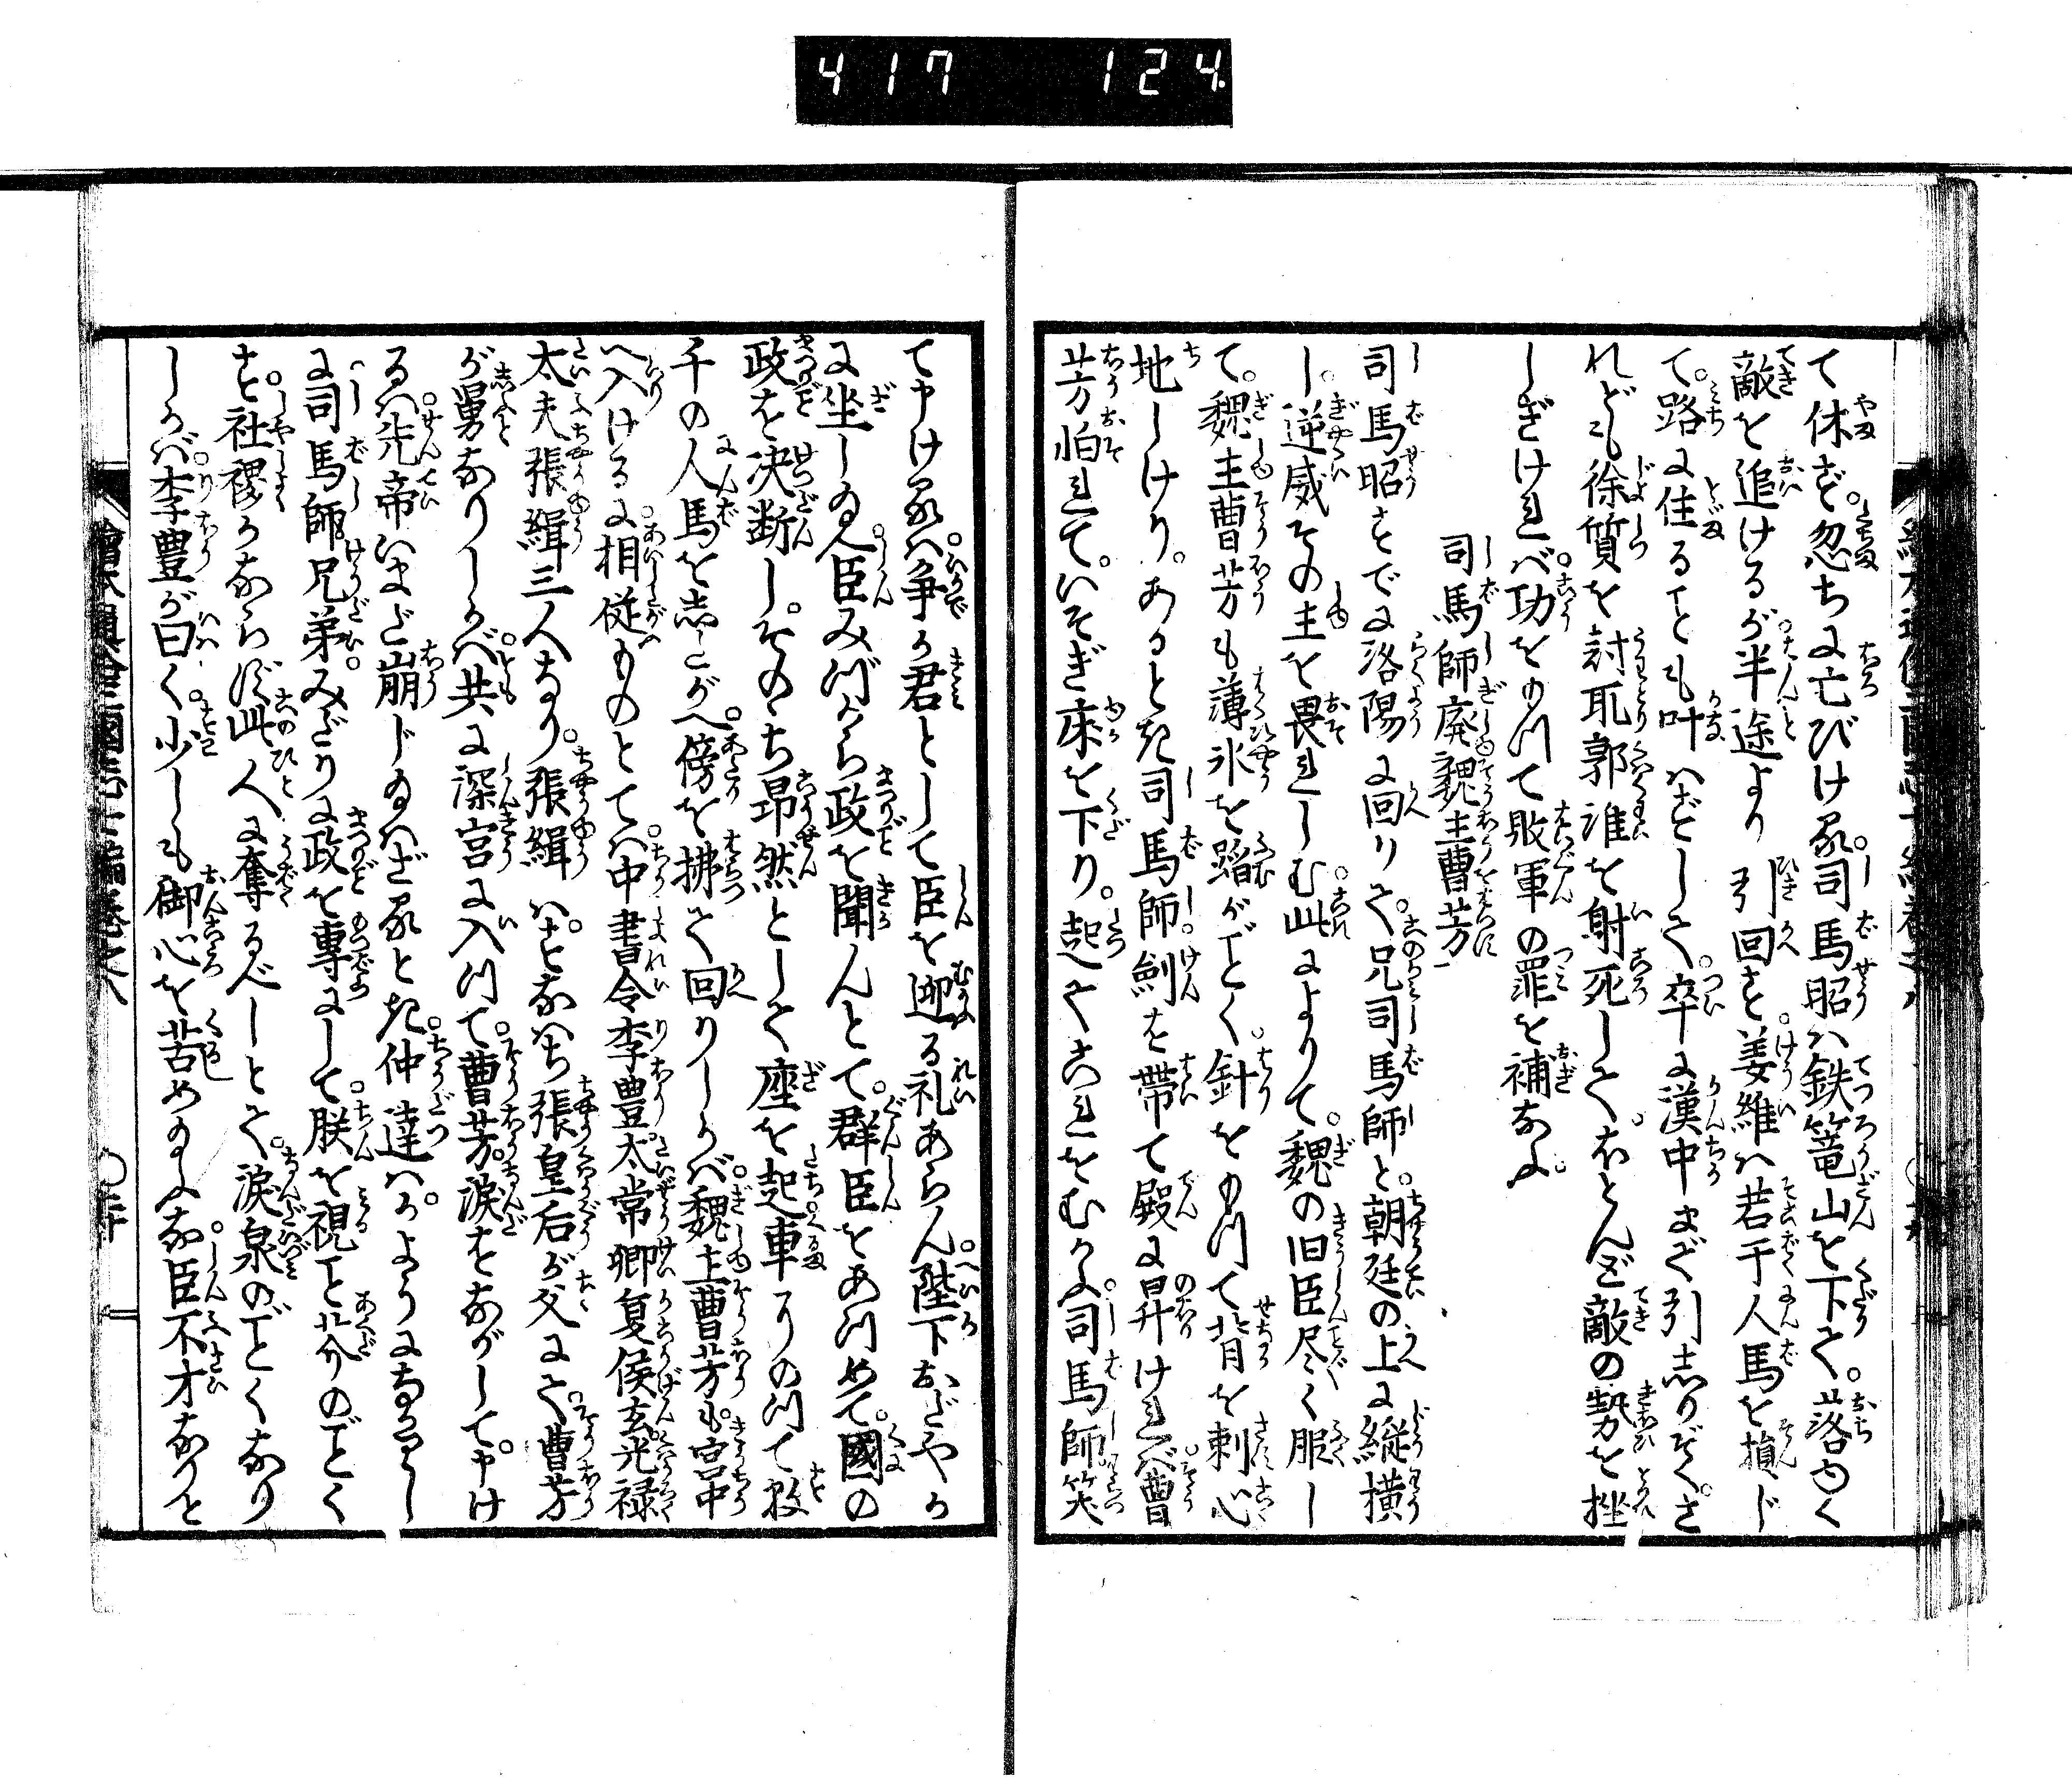 417 124
て休ず。忽ち亡びける。司馬昭ハ鉄篭山を下て。落ゆく
敵を追けるが半途より引回す。姜維ハ若干人馬を損じ
て。路に住ることも叶ハずして。卒に漢中まで引しりぞく。さ
れども徐質を討取郭淮を射死して。ほとんど敵の勢を挫
しぎければ。功をもつて敗軍の罪を補なふ
司馬師廃魏主曹芳
司馬昭すでに洛陽に回りて。兄司馬師と。朝廷の上に縦横
し。逆威その主を畏れしむ。此によりて。魏の旧臣尽く服し
て。魏主曹芳も薄氷を蹈がごとく。針をもつて背を刺心
地しけり。あるとき司馬師。剣を帯て殿に昇ければ。曹
芳怕れて。いそぎ床を下り。起てこれをむかふ。司馬師笑
て申けるハ。争か君として臣を迎る礼あらん。陛下おだやか
に坐し給へ。臣みづから政を聞んとて。群臣をあつめて。國の
政を決断し。そのゝち昂然として座を起。車にのつて数
千の人馬をしたがへ。傍を拂て回りしかば。魏主曹芳も。宮中
へ入けるに。相従ものとてハ。中書令李豊。太常卿夏侯玄。光禄
太夫張緝三人なり。張緝ハすなハち張皇后が父にて。曹芳
が舅なりしかば。共に深宮に入つて。曹芳。涙をながして申け
るハ。先帝いまだ崩じ給ハざるとき。仲達ハ。かようになかりし
に。司馬師兄弟。みだりに政を専にして。朕を視こと芥のごとく
す。社稷かならず此人に奪るべしとて。涙泉のごとくなり
しかば。李豊が曰く。少しも御心を苦めたまふな。臣不才なりと